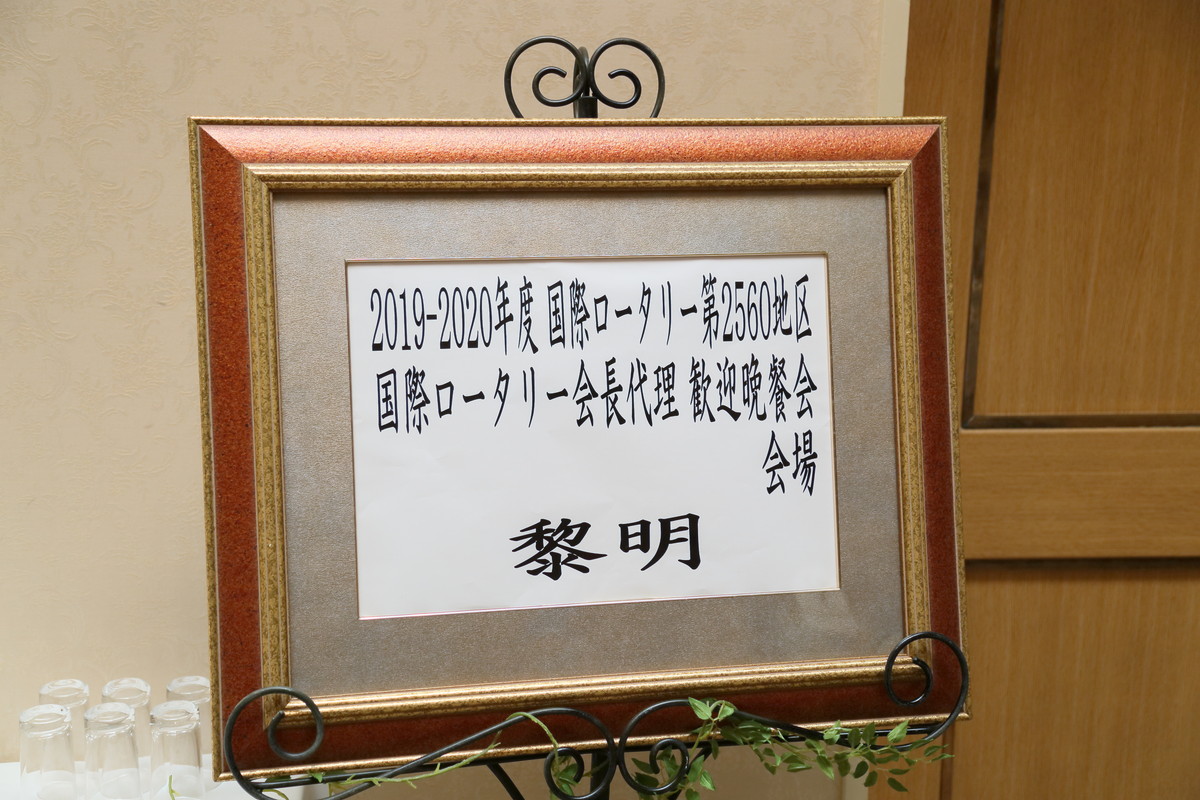 2019-2020年度 国際ロータリー第2560地区
国際ロータリー会長代理 歓迎晩餐会
会場
黎明